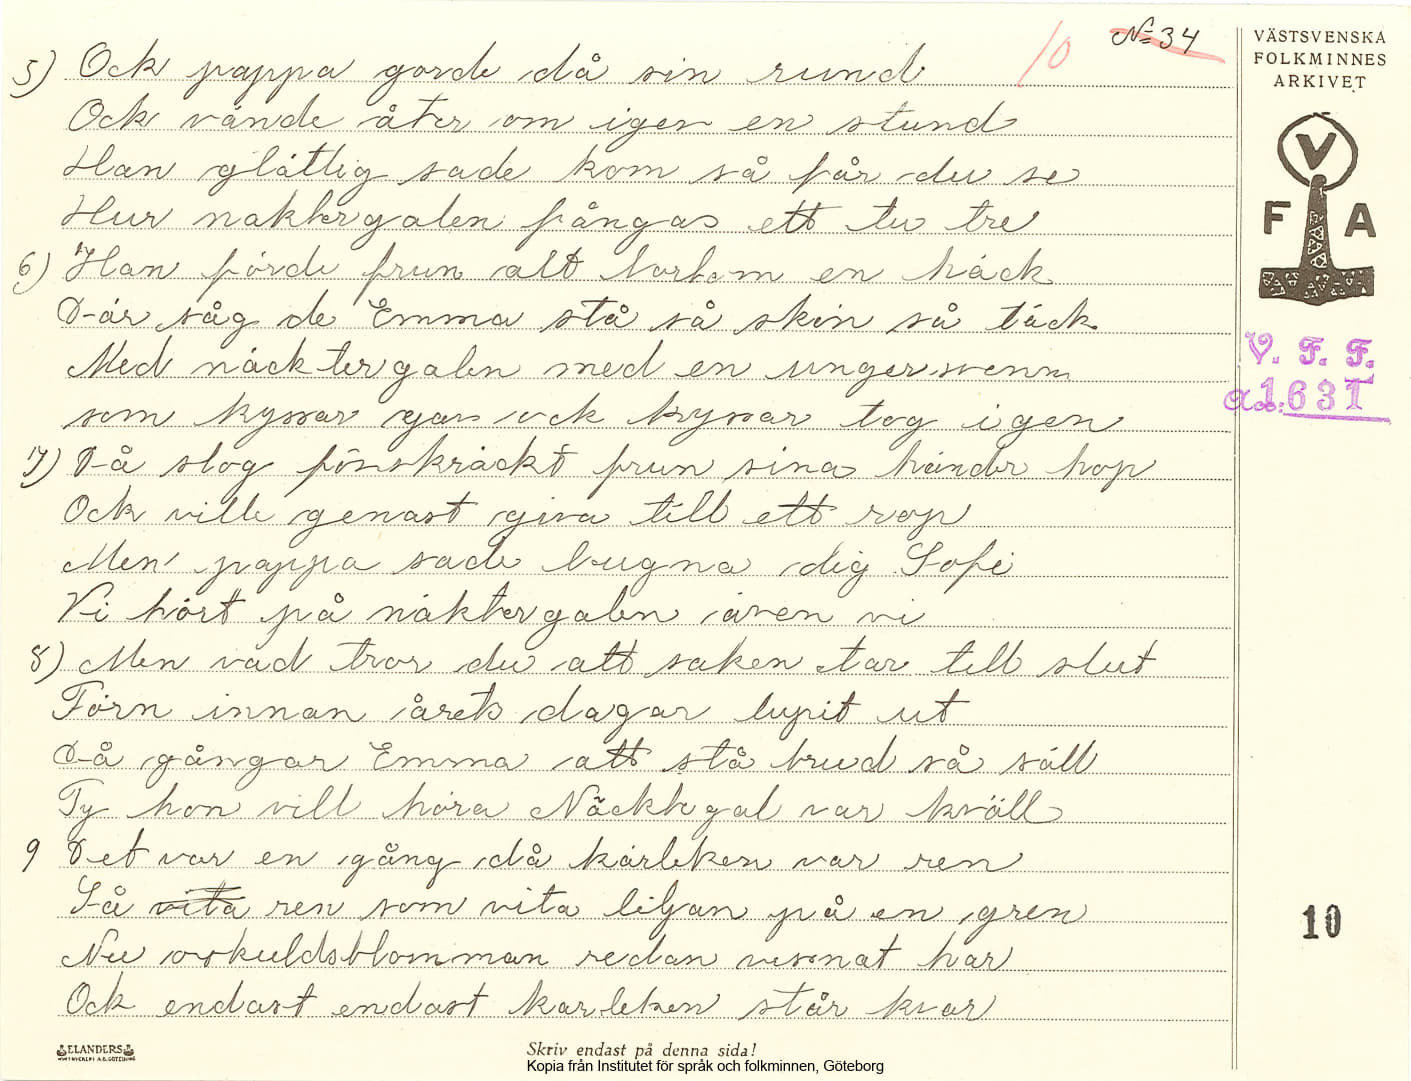 10 № 34
VÄSTSVENSKA
FOLKMINNES
ARKIVET
V
F A
V. F. F.
Acc. 1631
5) Ock pappa gorde då sin rund
Ock vände åter om igen en stund
Han glättig sade kom så får du se
Hur naktergalen fångas ett tu tre
6) Han förde frun alt bortom en häck
Där såg de Emma stå så skön så täck
Med näcktergalen med en ungersvenn
som kyssar gav ock kyssar tog igen
7) Då slog förskräckt frun sina händer hop
Ock ville genast giva till ett rop
Men pappa sade lugna dig Sofi
Vi hört på näktergalen även vi
8) Men vad tror du att saken tar till slut
Förn innan årets dagar lupit ut
Då gångar Emma att stå brud så säll
Ty hon vill höra Näcktegal var kväll
9 Det var en gång då kärleken var ren
Så vita ren som vita liljan på en gren
Nu oskuldsblomman redan vissnat har
Ock endast endast karleken står kvar
10
ELANDERS
Skriv endast på denna sida!
Kopia från Institutet för språk och folkminnen, Göteborg